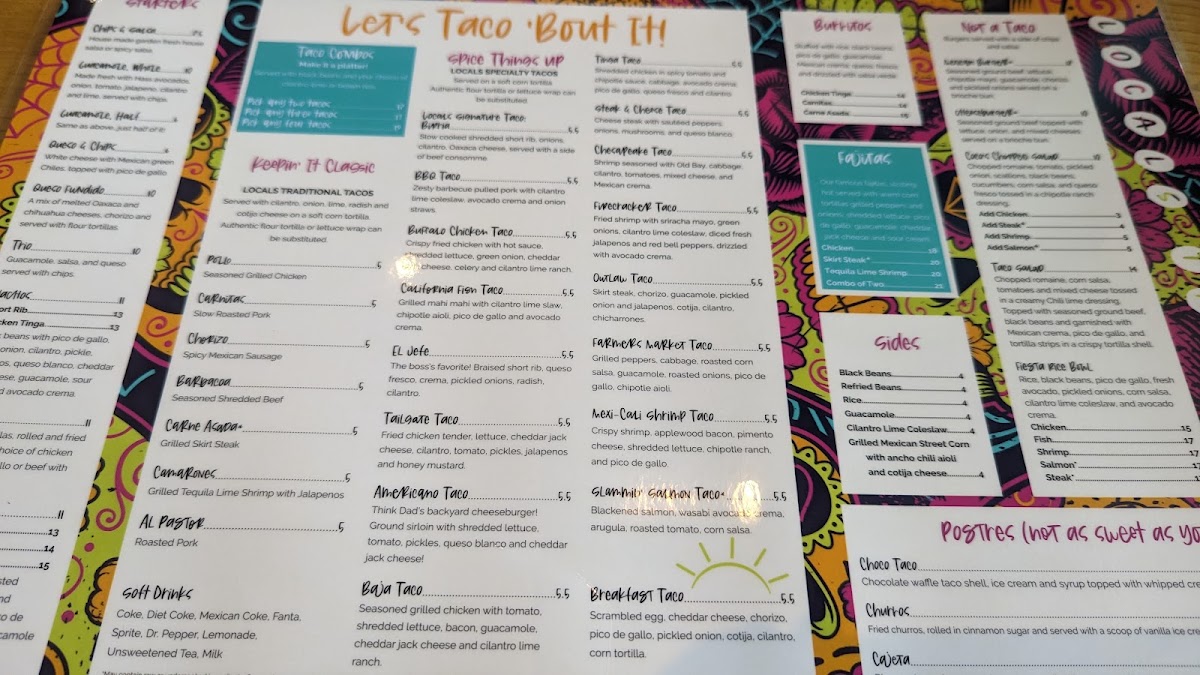 Starters
Chips & Salsa
House made garden fresh house
salsa or spicy salsa.
Guacamole, Whole 10
Made fresh with Hass avocado,
onion, tomato, jalapeno, cilantro
and lime, served with chips.
Guacamole, Half
Same as above, just half of it
Queso & Chips
White cheese with Mexican green
Chiles, topped with pico de gallo
Queso Fundido 10
A mix of melted Oaxaca and
chihuahua cheeses, chorizo and
served with flour tortillas.
Trio 10
Guacamole, salsa, and queso
served with chips.
11
13
Chicken Tinga 13
beans with pico de gallo,
onion, cilantro, pickle,
queso blanco, cheddar
guacamole, sour
avocado crema.
11
rolled and fried
choice of chicken
or beef with
11
13
14
15
Let's Taco 'Bout It!
Taco Combos
Make it a platter!
Served with black beans and your choice of
Pick any two tacos
Pick any three tacos
Keepin' It Classic
LOCALS TRADITIONAL TACOS
Served with cilantro, onion, lime, radish and
cotija cheese on a soft corn tortilla.
Authentic flour tortilla or lettuce wrap can
be substituted.
Pollo 5
Seasoned Grilled Chicken
Carnitas 5
Slow Roasted Pork
Chorizo 5
Spicy Mexican Sausage
Barbacoa 5
Seasoned Shredded Beef
Carne Asada* 5
Grilled Skirt Steak
Camarones 5
Grilled Tequila Lime Shrimp with Jalapenos
Al Pastor 5
Roasted Pork
Soft Drinks
Coke, Diet Coke, Mexican Coke, Fanta,
Sprite, Dr. Pepper, Lemonade,
Unsweetened Tea, Milk
Spice Things Up
LOCALS SPECIALTY TACOS
Served on a soft corn tortilla
Authentic flour tortilla or lettuce wrap can
be substituted.
Locals Signature Taco:
Birria 5.5
Slow cooked shredded short rib, onions,
cilantro, Oaxaca cheese, served with a side
of beef consomme.
BBQ Taco 5.5
Zesty barbecue pulled pork with cilantro
lime coleslaw, avocado crema and onion
straws.
Buffalo Chicken Taco 5.5
Crispy fried chicken with hot sauce,
shredded lettuce, green onion, cheddar
jack cheese, celery and cilantro lime ranch.
California Fish Taco 5.5
Grilled mahi mahi with cilantro lime slaw,
chipotle aioli, pico de gallo and avocado
crema.
El Jefe 5.5
The boss's favorite! Braised short rib, queso
fresco, crema, pickled onions, radish,
cilantro.
Tailgate Taco 5.5
Fried chicken tender, lettuce, cheddar jack
cheese, cilantro, tomato, pickles, jalapenos
and honey mustard.
Americano Taco 5.5
Think Dad's backyard cheeseburger!
Ground sirloin with shredded lettuce,
tomato, pickles, queso blanco and cheddar
jack cheese!
Baja Taco 5.5
Seasoned grilled chicken with tomato,
shredded lettuce, bacon, guacamole,
cheddar jack cheese and cilantro lime
ranch.
Tinga Taco 5.5
Shredded chicken in spicy tomato and
chipotle sauce, cabbage, avocado crema,
pico de gallo, queso fresco and cilantro.
Steak & Cheese Taco 5.5
Cheese steak with sautéed peppers,
onions, mushrooms, and queso blanco.
Chesapeake Taco 5.5
Shrimp seasoned with Old Bay, cabbage,
cilantro, tomatoes, mixed cheese, and
Mexican crema.
Firecracker Taco 5.5
Fried shrimp with sriracha mayo, green
onions, cilantro lime coleslaw, diced fresh
jalapenos and red bell peppers, drizzled
with avocado crema.
Outlaw Taco 5.5
Skirt steak, chorizo, guacamole, pickled
onion and jalapenos, cotija, cilantro,
chicharrones.
Farmers Market Taco 5.5
Grilled peppers, cabbage, roasted corn
salsa, guacamole, roasted onions, pico de
gallo, chipotle aioli.
Mexi-Cali Shrimp Taco 5.5
Crispy shrimp, applewood bacon, pimento
cheese, shredded lettuce, chipotle ranch,
and pico de gallo.
Slammin' Salmon Taco* 5.5
Blackened salmon, wasabi avocado crema,
arugula, roasted tomato, corn salsa.
Breakfast Taco 5.5
Scrambled egg, cheddar cheese, chorizo,
pico de gallo, pickled onion, cotija, cilantro,
corn tortilla.
Burritos
Stuffed with rice, black beans,
pico de gallo, guacamole,
Mexican crema, queso, fresco
and drizzled with salsa verde
Chicken Tinga
Carnitas
Carne Asada
Fajitas
Our famous fajitas,
hot served with warm corn
tortillas grilled peppers and
onions, shredded lettuce, pico
de gallo, guacamole, cheddar
jack cheese and sour cream
Chicken 18
Skirt Steak* 20
Tequila Lime Shrimp 20
Combo of Two 21
Sides
Black Beans 4
Refried Beans 4
Rice 4
Guacamole 4
Cilantro Lime Coleslaw 4
Grilled Mexican Street Corn
with ancho chili aioli
and cotija cheese 4
Not a Taco
Burgers served with a side of chips
and salsa
Locals Chopped Salad 10
Chopped romaine, tomato, pickled
onion, scallions, black beans,
cucumbers, corn salsa, and queso
fresco tossed in a chipotle ranch
dressing.
Add Chicken 3
Add Steak* 4
Add Shrimp 5
Add Salmon* 5
Taco Salad 14
Chopped romaine, corn salsa,
tomatoes and mixed cheese tossed
in a creamy Chili lime dressing,
Topped with seasoned ground beef,
black beans and garnished with
Mexican crema, pico de gallo, and
tortilla strips in a crispy tortilla shell.
Fiesta Rice Bowl
Rice, black beans, pico de gallo, fresh
avocado, pickled onions, corn salsa,
cilantro lime coleslaw, and avocado
crema.
Chicken 15
Fish 17
Shrimp 17
Salmon*
Steak*
LOCALS
Postres (not as sweet as yo
Choco Taco
Chocolate waffle taco shell, ice cream and syrup topped with whipped cre
Churros
Fried churros, rolled in cinnamon sugar and served with a scoop of vanilla ice cre
Cajeta